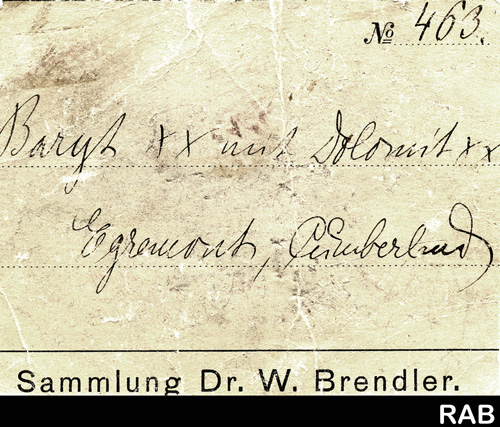 № 463.
Baryt xx mit Dolomit xx
Egremont, Cumberland
Sammlung Dr. W. Brendler.
RAB